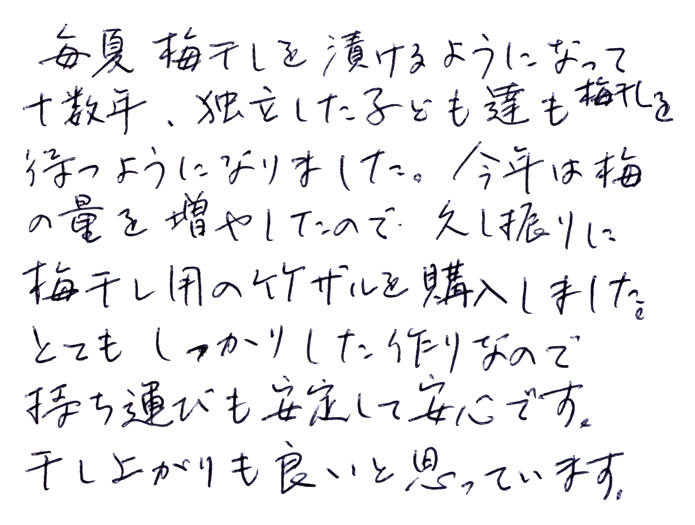 毎夏 梅干しを 漬けるようになって
十数年、独立した子ども達も梅干しを
待つようになりました。今年は梅
の量を増やしたので 久し振りに
梅干し用の竹ザルを購入しました。
とてもしっかりした作りなので
持ち運びも安定して安心です。
干し上がりも良いと思っています。